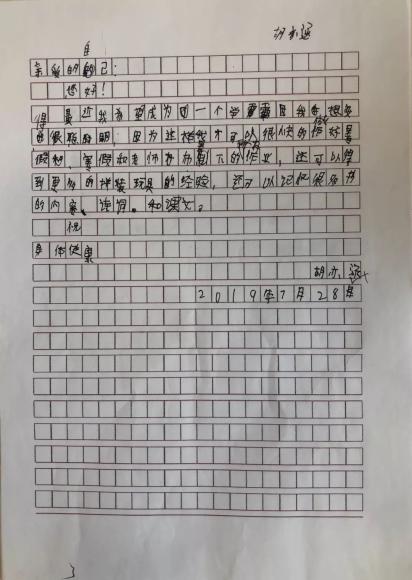 胡亦
自
亲爱的己:
您好!
最近我希望成为一个学霸因我会想
很聪明,因为这样我才可以很快的作好暑
假和寒假老师布的作业,还可以得
到更多的拼装玩具的经验,还可以记把很多书
的内容、诗词。和课文。
祝
身体健康
胡亦
2019年7月28日